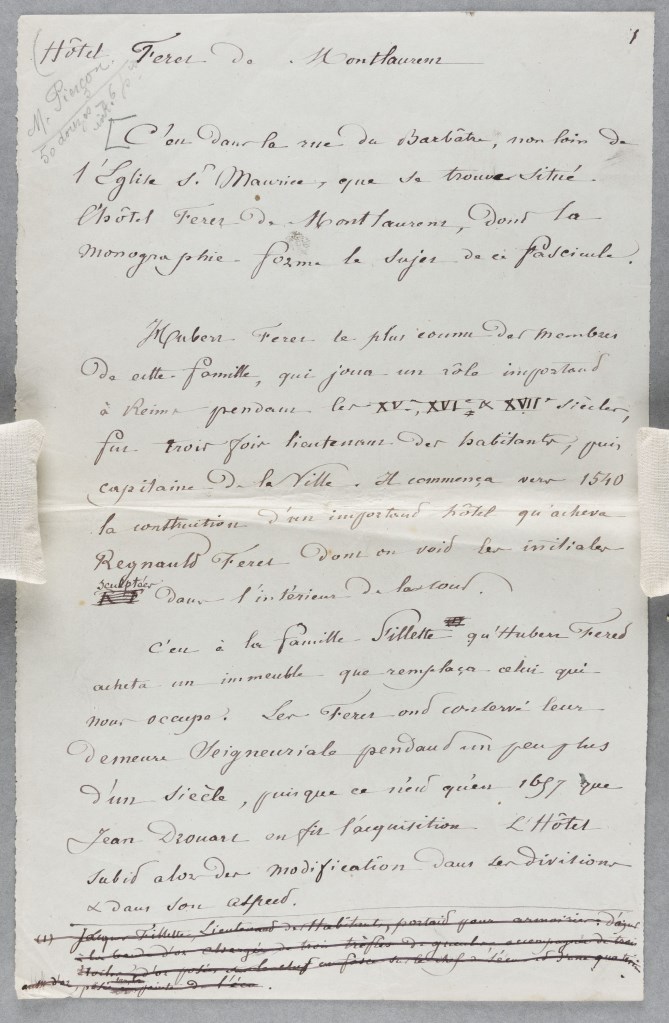 1
(Hôtel Feret de Montlaurent
M. Pinçon
50 doubles
[C'est dans la rue du Barbâtre, non loin de
l'Église St Maurice, que se trouve situé
l'hôtel Feret de Montlaurent, dont la
monographie forme le sujet de ce fascicule.
Hubert Feret le plus connu des membres
de cette famille, qui joua un rôle important
à Reims pendant les XVe, XVIe & XVIIe siècles,
fut trois fois lieutenant des habitants, puis
capitaine de la Ville. Il commença vers 1540
la construction d'un important hôtel qu'acheva
Regnauld Feret dont on voit les initiales
sculptées
dans l'intérieur de la cour.
C'est à la famille Fillette qu'Hubert Feret
acheta un immeuble que remplaça celui qui
nous occupe. Les Feret ont conservé leur
demeure Seigneuriale pendant un peu plus
d'un siècle, puisque ce n'est qu'en 1657 que
Jean Drouart en fit l'acquisition. L'Hôtel
subit alors des modification dans ses divisions
& dans son aspect.
(1) Jacques Fillette, Lieutenant des Habitants, portait pour armoiries: d'azur
à la bande d'or chargée de trois trèfles de gueules, accompagnée de trois
étoiles d'or posées
de l'écu.